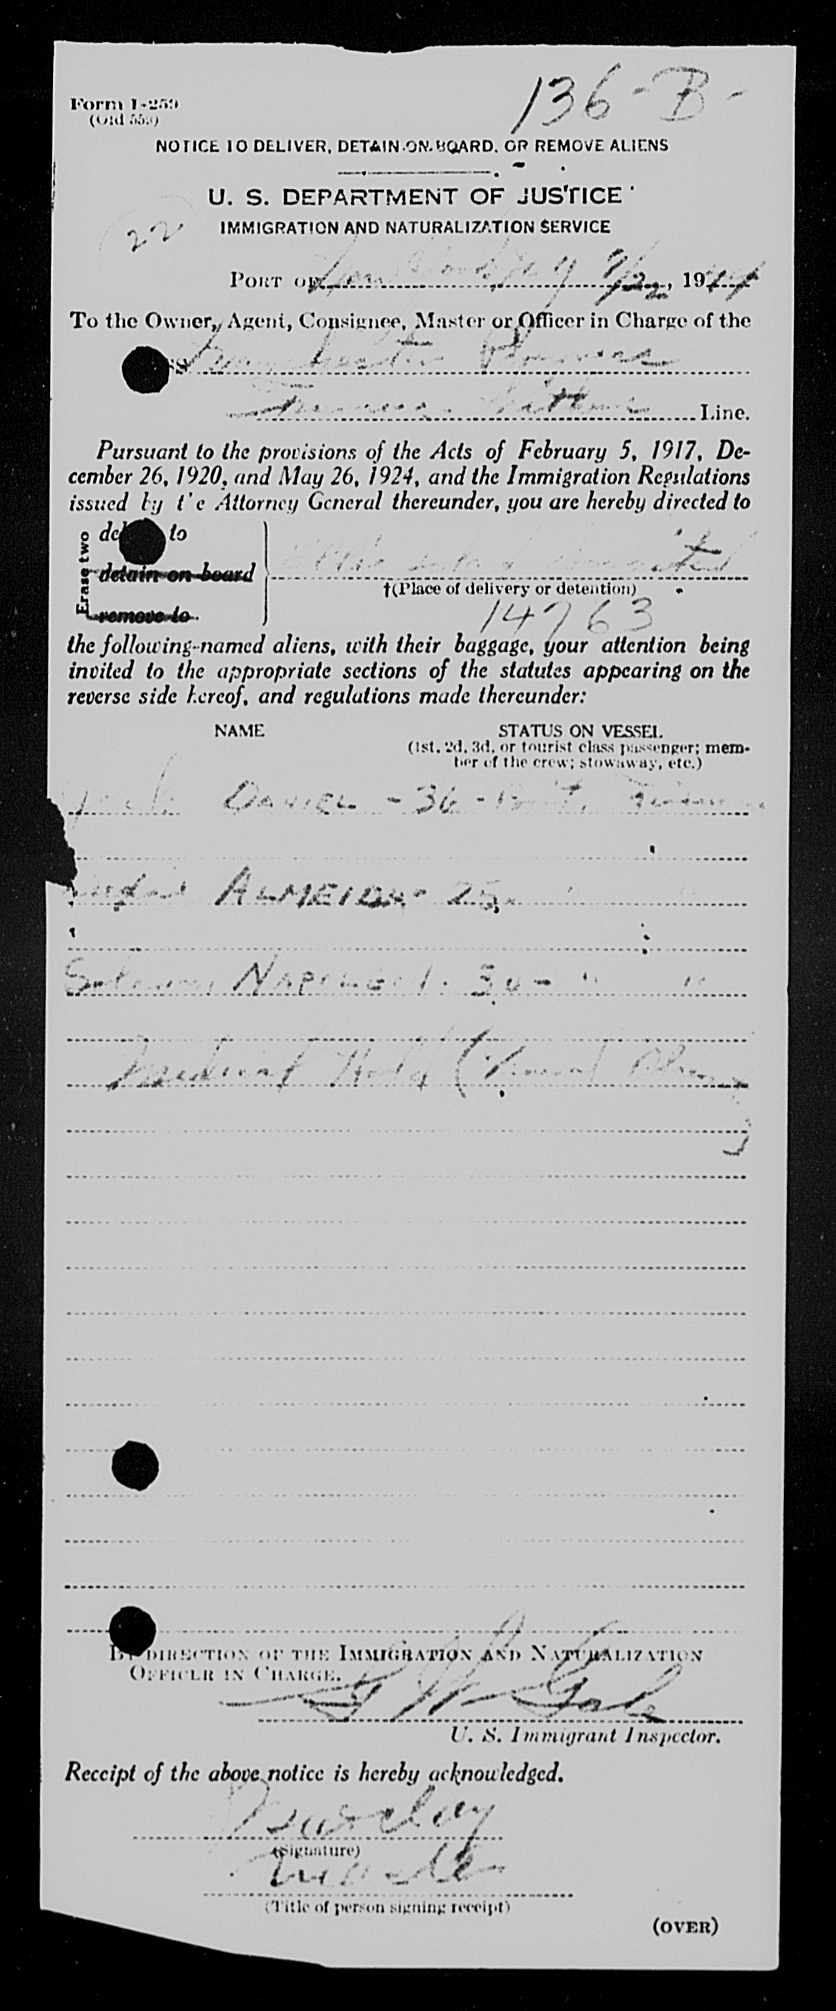 136-B-
Form I-259
(Old 559)
NOTICE TO DELIVER, DETAIN ON BOARD, OR REMOVE ALIENS
U. S. DEPARTMENT OF JUSTICE
22
IMMIGRATION AND NATURALIZATION SERVICE
PORT OF 9/22, 1944
To the Owner, Agent, Consignee, Master or Officer in Charge of the
SS
Line.
Pursuant to the provisions of the Acts of February 5, 1917, De-
cember 26, 1920, and May 26, 1924, and the Immigration Regulations
issued by the Attorney General thereunder, you are hereby directed to
Erase two
to
detain on board
†(Place of delivery or detention)
remove to
14763
the following-named aliens, with their baggage, your attention being
invited to the appropriate sections of the statutes appearing on the
reverse side hereof, and regulations made thereunder:
NAME STATUS ON VESSEL
(1st, 2d, 3d, or tourist class passenger; mem-
ber of the crew; stowaway, etc.)
DANIEL - 36 - Brit.
ALMEIDA - 25
30 - " "
Medical Hold
BY DIRECTION OF THE IMMIGRATION AND NATURALIZATION
OFFICER IN CHARGE.
G W Gale
U. S. Immigrant Inspector.
Receipt of the above notice is hereby acknowledged.
Barclay
(Signature)
Master
(Title of person signing receipt)
(OVER)